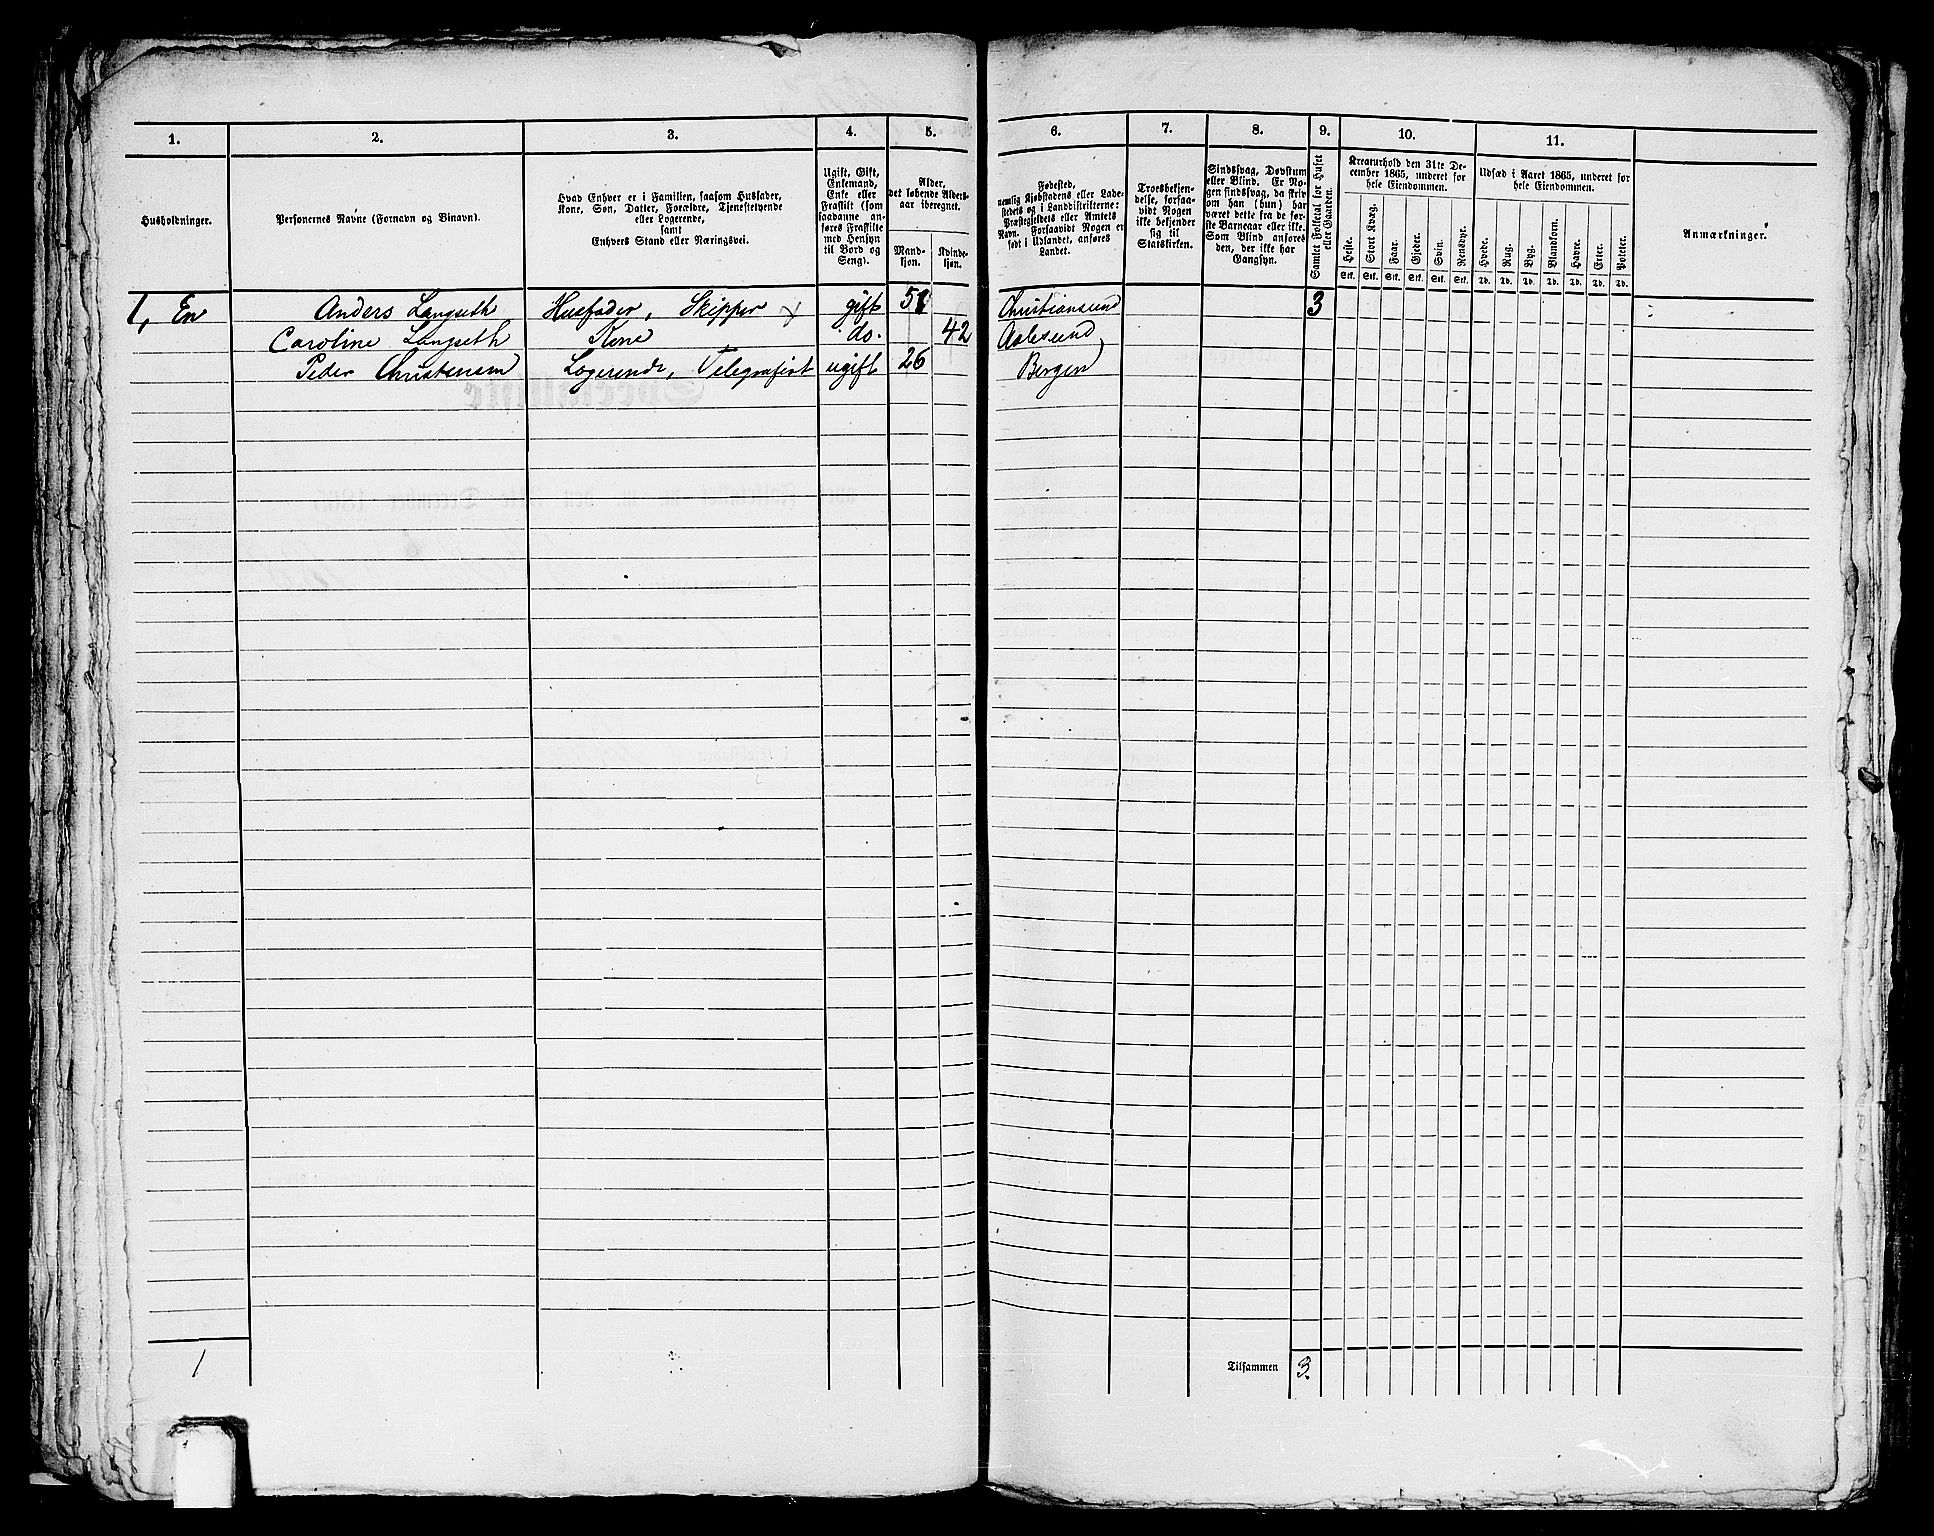 1.
2.
3.
4.
5.
6.
7.
8.
9.
10.
11.
Husholdninger.
Personernes Navne (Fornavn og Binavn).
Hvad Enhver er i Familien, saasom Husfader,
Kone, Søn, Datter, Forældre, Tjenestetyende
eller Logerende,
samt
Enhvers Stand eller Næringsvei.
Ugift, Gift,
Enkemand,
Enke eller
Fraskilt (som
saadanne an-
føres Fraskilte
med Hensyn
til Bord og
Seng).
Alder,
det løbende Alders-
aar iberegnet.
Mand-
kjøn.
Kvinde-
kjøn.
Fødested,
nemlig Kjøbstadens eller Lade-
stedets og i Landdistrikterne:
Præstegjeldets eller Amtets
Navn. Forsaavidt Nogen er
født i Udlandet, anføres
Landet.
Troesbekjen-
delse, forsaa-
vidt Nogen
ikke bekjender
sig til
Statskirken.
Sindssvag, Døvstum
eller Blind. Er No-
gen sindssvag, da skriv
om han (hun) har
været dette fra de før-
ste Barneaar eller ikke.
Som Blind anføres
den, der ikke har
Gangsyn.
Samlet Folketal for Huset
eller Gaarden.
Kreaturhold den 31te De-
cember 1865, underet for
hele Eiendommen.
Heste.
Stort Kvæg.
Faar.
Gjeder.
Svin.
Rensdyr.
Stk. Stk. Stk. Stk. Stk. Stk.
Udsæd i Aaret 1865, underet for
hele Eiendommen.
Hvede.
Rug.
Byg.
Blandkorn.
Havre.
Erter.
Poteter.
Td. Td. Td. Td. Td. Td. Td.
Anmærkninger.
1, En Anders Langseth Husfader, Skipper gift 51 Christiansund 3
Caroline Langseth Kone do. 42 Aalesund
Peder Christensen Logerende, Telegrafist ugift 26 Bergen
1
Tilsammen 3.